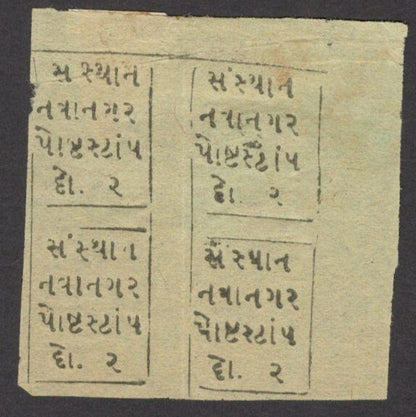 સંસ્થાન
નવાનગર
પોષ્ટસ્ટાંપ
દો. ૨
સંસ્થાન
નવાનગર
પોષ્ટસ્ટાંપ
દો. ૨
સંસ્થાન
નવાનગર
પોષ્ટસ્ટાંપ
દો. ૨
સંસ્થાન
નવાનગર
પોષ્ટસ્ટાંપ
દો. ૨